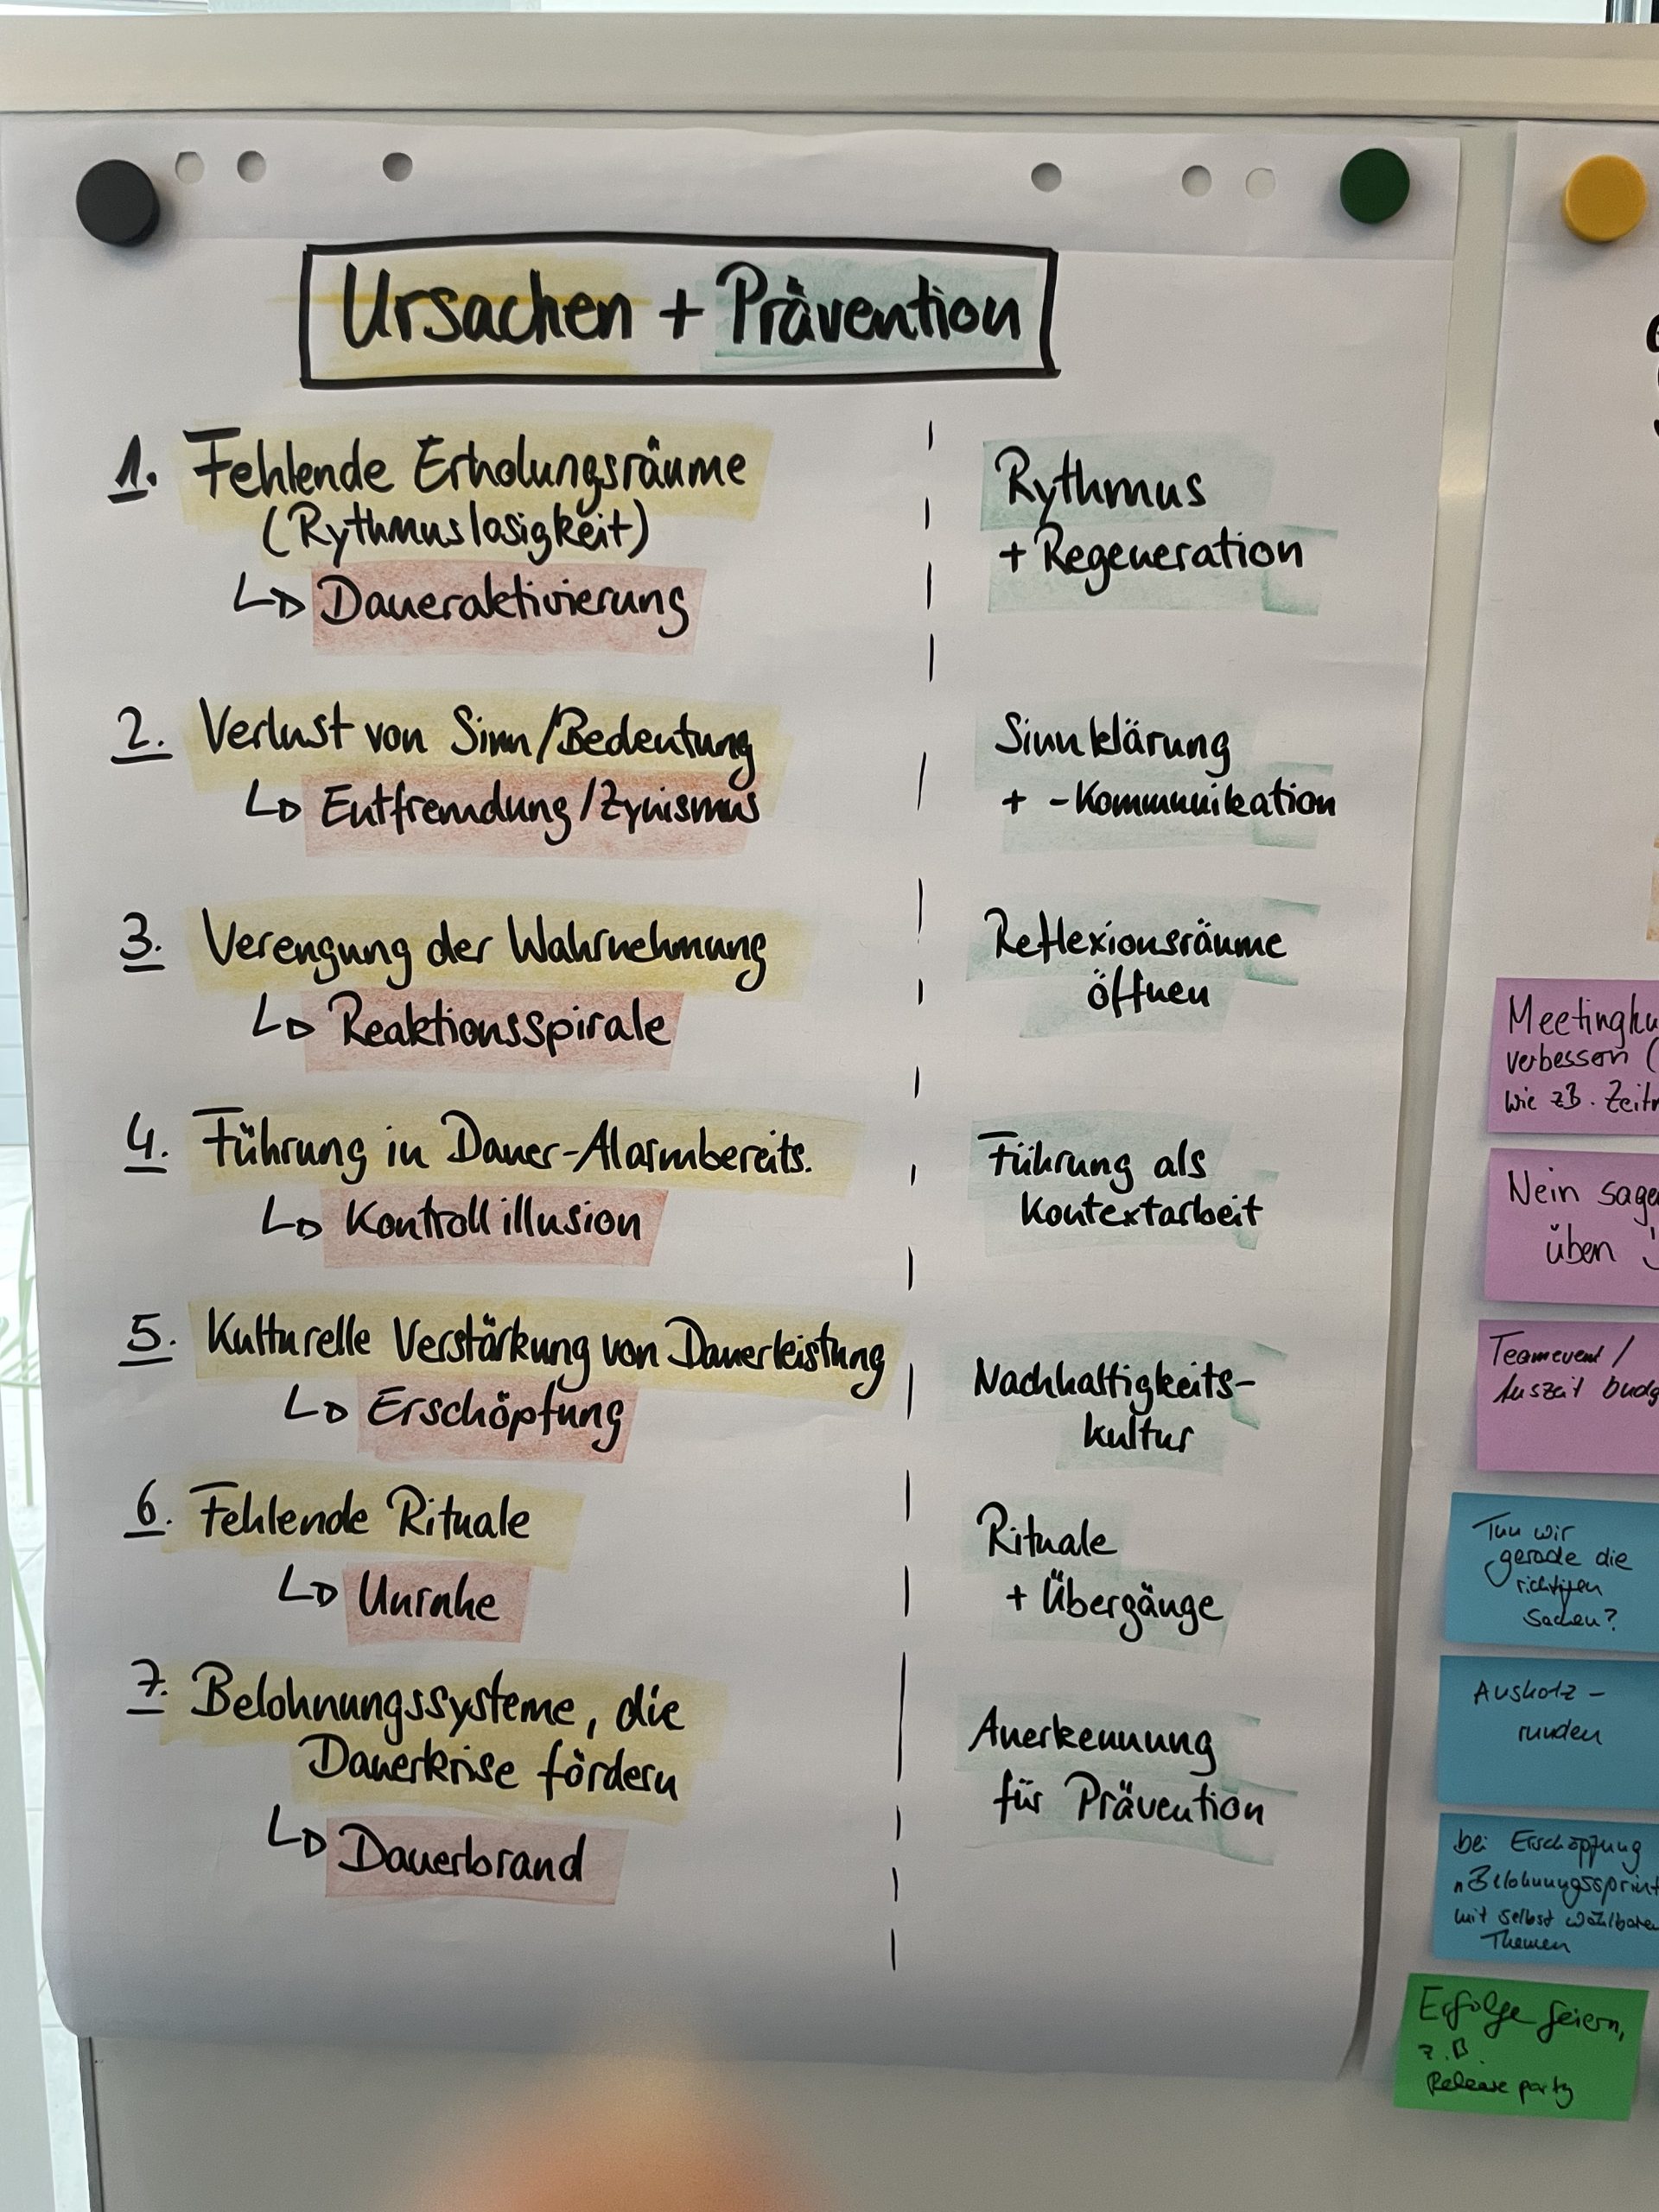 Ursachen + Prävention
1. Fehlende Erholungsräume
(Rythmuslosigkeit)
Daueraktivierung
Rythmus
+ Regeneration
2. Verlust von Sinn/Bedeutung
Entfremdung/Zynismus
Sinnklärung
+ -Kommunikation
3. Verengung der Wahrnehmung
Reaktionsspirale
Reflexionsräume
öffnen
4. Führung in Dauer-Alarmbereits.
Kontrollillusion
Führung als
Kontextarbeit
5. Kulturelle Verstärkung von Dauerleistung
Erschöpfung
Nachhaltigkeits-
kultur
6. Fehlende Rituale
Unruhe
Rituale
+ Übergänge
7. Belohnungssysteme, die
Dauerkrise fördern
Dauerbrand
Anerkennung
für Prävention
verbessern (
wie zB. 
Nein
üben
Teamevent /
Auszeit
Tun wir
gerade die
richtigen
Sachen?
Auskotz-
runden
bei Erschöpfung
"Belohnungssprint
mit selbst wählbaren
Themen
Erfolge feiern,
z.B.
Release party